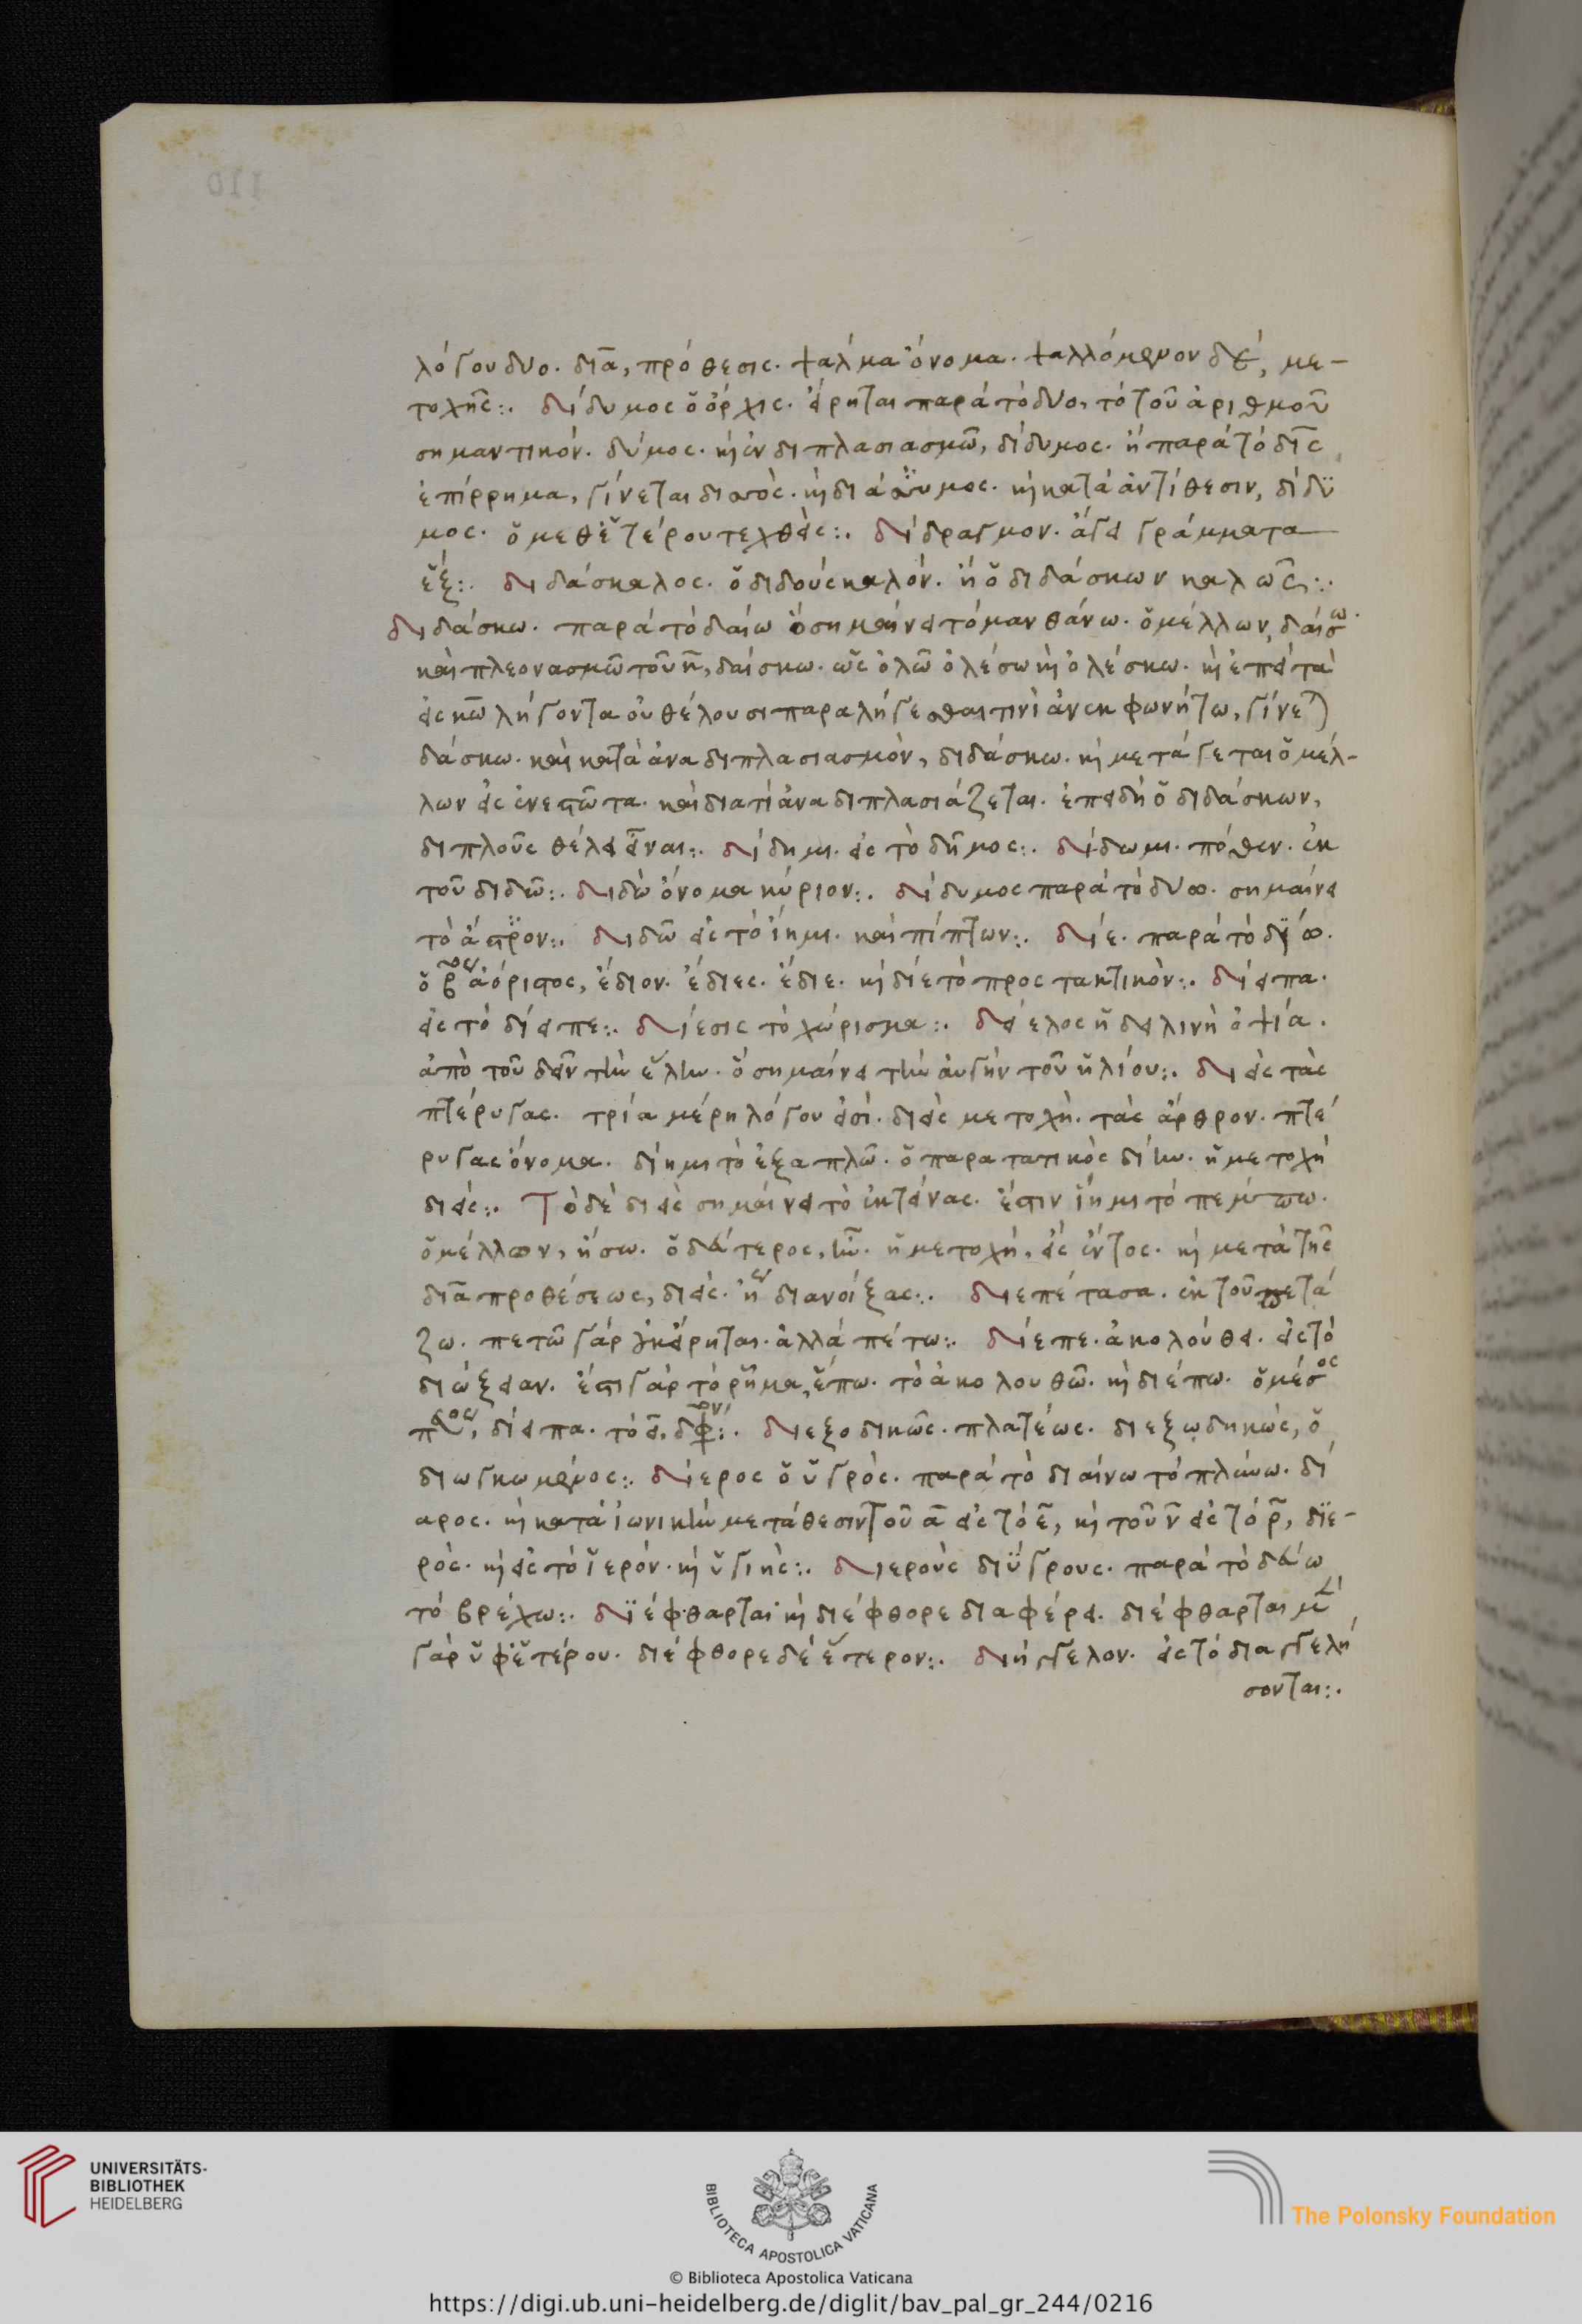 110
λόγου δύο. διὰ, πρόθεσις. ψάλμα ὄνομα. ψαλλόμενον δὲ, με-
τοχῆς:. δίδυμος ὁ ὄρχις. εἴρηται παρὰ τὸ δύο, τὸ τοῦ ἀριθμοῦ
σημαντικόν. δύμος. κ̀ ἐν διπλασιασμῶ, δίδυμος. ἢ παρὰ τὸ δὶς
ἐπίρρημα, γίνεται δισσὸς. κ̀ κατὰ ἀντίθεσιν, δίδυ
μος. ὁ μεθ' ἑτέρου τεχθείς:. δίδραγμον. ἄγει γράμματα
ἕξ:. διδάσκαλος. ὁ διδοὺς καλόν. ἢ ὁ διδάσκων καλῶς:.
διδάσκω. παρὰ τὸ δαίω ὃ σημαίνει τὸ μανθάνω. ὁ μέλλων, δαίσω.
καὶ πλεονασμῶ τοῦ κ̄, δαίσκω. ὡς ὀλῶ ὀλέσω κ̀ ὀλέσκω. κ̀ ἐπεὶ τὰ
εἰς κω λήγοντα οὐ θέλουσι παραλήγεσθαι τινὶ ἀνεκφωνήτω, γίνεται
δάσκω. καὶ κατὰ ἀναδιπλασιασμὸν, διδάσκω. κ̀ μετάγεται ὁ μέλ-
λων εἰς ἐνεστῶτα. καὶ διατί ἀναδιπλασιάζεται. ἐπειδὴ ὁ διδάσκων,
διπλοῦς θέλει εἶναι:. δίδημι. εἰς τὸ δῆμος:. δίδωμι. πόθεν. ἐκ
τοῦ διδῶ:. διδὼ ὄνομα κύριον:. δίδυμος παρὰ τὸ δύω. σημαίνει
τὸ ἄστρον:. διδῶ εἰς τὸ ἵημι. καὶ πίπτων:. δίε. παρὰ τὸ δίω.
ὁ β̄ ἀόριστος, ἔδιον. ἔδιες. ἔδιε. κ̀ δίε τὸ προστακτικὸν:. δίειπα.
εἰς τὸ δίειπε:. δίεσις τὸ χώρισμα:. δείελος ἡ δειλινὴ ὀψία.
ἀπὸ τοῦ δεῖν τὴν ἕλην. ὃ σημαίνει τὴν αὐγὴν τοῦ ἡλίου:. διεὶς τὰς
πτέρυγας. τρία μέρη λόγου εἰσί. διεὶς μετοχὴ. τὰς ἄρθρον. πτέ
ρυγας ὄνομα. δίημι τὸ ἐξαπλῶ. ὁ παρατατικὸς δίην. ἡ μετοχὴ
διείς:. Τὸ δὲ διεὶς σημαίνει τὸ ἐκτείνας. ἔστιν ἵημι τὸ πέμπω.
ὁ μέλλων, ἥσω. ὁ δεύτερος, ἦν. ἡ μετοχή, εἷς ἕντος. κ̀ μετὰ τῆς
διὰ προθέσεως, διείς. ἢ διανοίξας:. διεπέτασα. ἐκ τοῦ πετά
ζω. πετῶ γὰρ οὐκ εἴρηται. ἀλλὰ πέτω:. δίεπε. ἀκολούθει. εἰς τὸ
διώξειαν. ἔστι γὰρ τὸ ῥῆμα, ἕπω. τὸ ἀκολουθῶ. κ̀ διέπω. ὁ μέσος
δίειπα. διεξοδικῶς. πλατέως. διεξωδηκώς, ὁ
διωγκωμένος:. δίερος ὁ ὑγρὸς. παρὰ τὸ διαίνω τὸ πλύνω. δί
αρος. κ̀ κατὰ ἰωνικὴν μετάθεσιν τοῦ ᾱ εἰς τὸ ε̄, κ̀ τοῦ ν̄ εἰς τὸ ρ̄, διε-
ρός. κ̀ εἰς τὸ ἱερόν. κ̀ ὑγιής:. διερούς διύγρους. παρὰ τὸ δεύω
τὸ βρέχω:. διέφθαρται κ̀ διέφθορε διαφέρει. διέφθαρται μὲν
γὰρ ὑφ' ἑτέρου. διέφθορε δὲ ἕτερον:. διήγγελον. εἰς τὸ διαγγελή
σονται:.
UNIVERSITÄTS-
BIBLIOTHEK
HEIDELBERG
BIBLIOTECA APOSTOLICA VATICANA
The Polonsky Foundation
© Biblioteca Apostolica Vaticana
https://digi.ub.uni-heidelberg.de/diglit/bav_pal_gr_244/0216